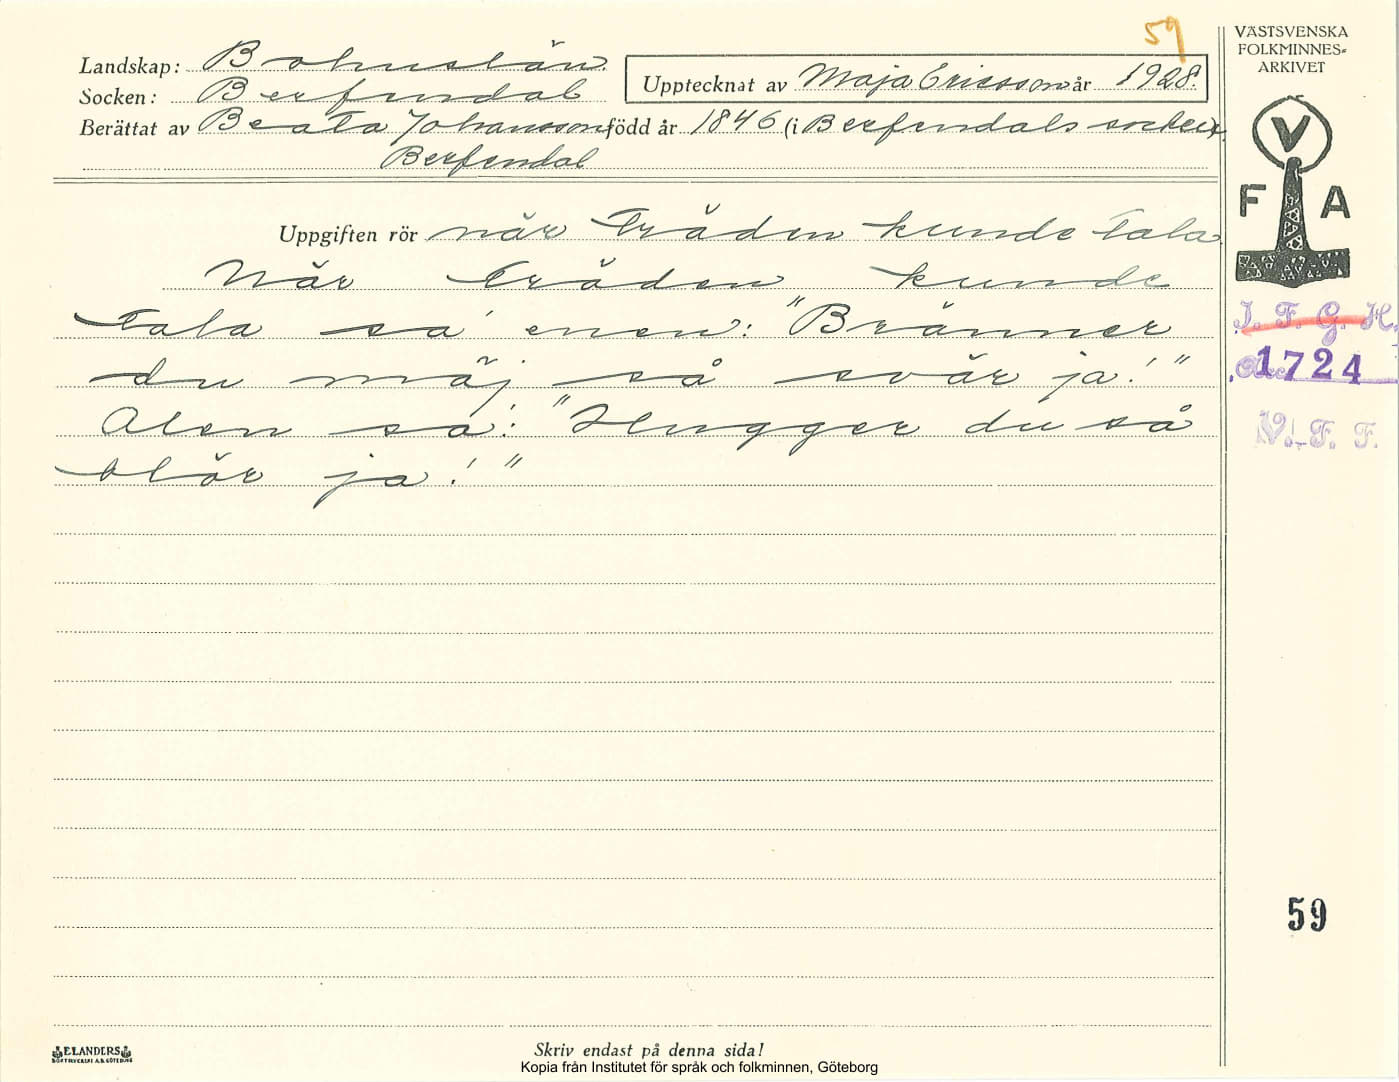 59
Landskap: Bohuslän.
Socken: Berfendal
Upptecknat av Maja Ericsson år 1928.
Berättat av Beata Johansson född år 1846 (i Berfendals socken).
Berfendal
Uppgiften rör när träden kunde tala.
När träden kunde
tala sa' enen: "Bränner
du mäj så svär ja'!"
Alen sa': "Hugger du så
blör ja'!"
VÄSTSVENSKA
FOLKMINNES-
ARKIVET
V
F A
I. F. G. H.
1724
V. F. F.
59
ELANDERS
BOKTRYCKERI A.B. GÖTEBORG
Skriv endast på denna sida!
Kopia från Institutet för språk och folkminnen, Göteborg